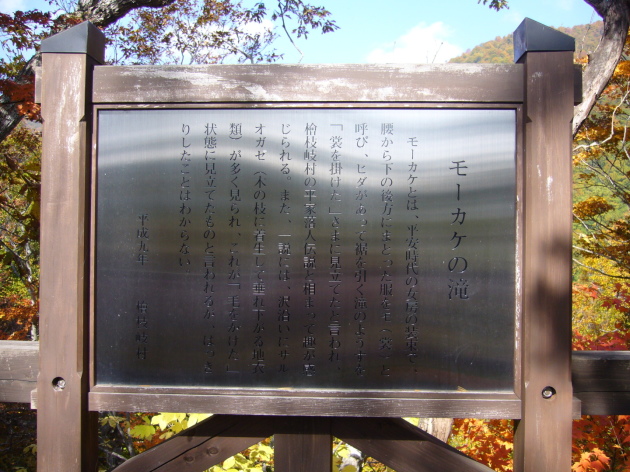 モーカケの滝
モーカケとは、平安時代の女房の装束で、
腰から下の後方にまとった服を「裳」と
呼び、ヒダがあって裾を引く滝のようすを
「裳を掛けた」さまに見立てたと言われ、
桧枝岐村の平家落人伝説と相まって興が感
じられる。また、一説には、沢沿いにサル
オガセ（木の枝に着生して垂れ下がる地衣
類）が多く見られ、これが「毛をかけた」
状態に見立てたものと言われるが、はっき
りしたことはわからない。
平成九年 桧枝岐村